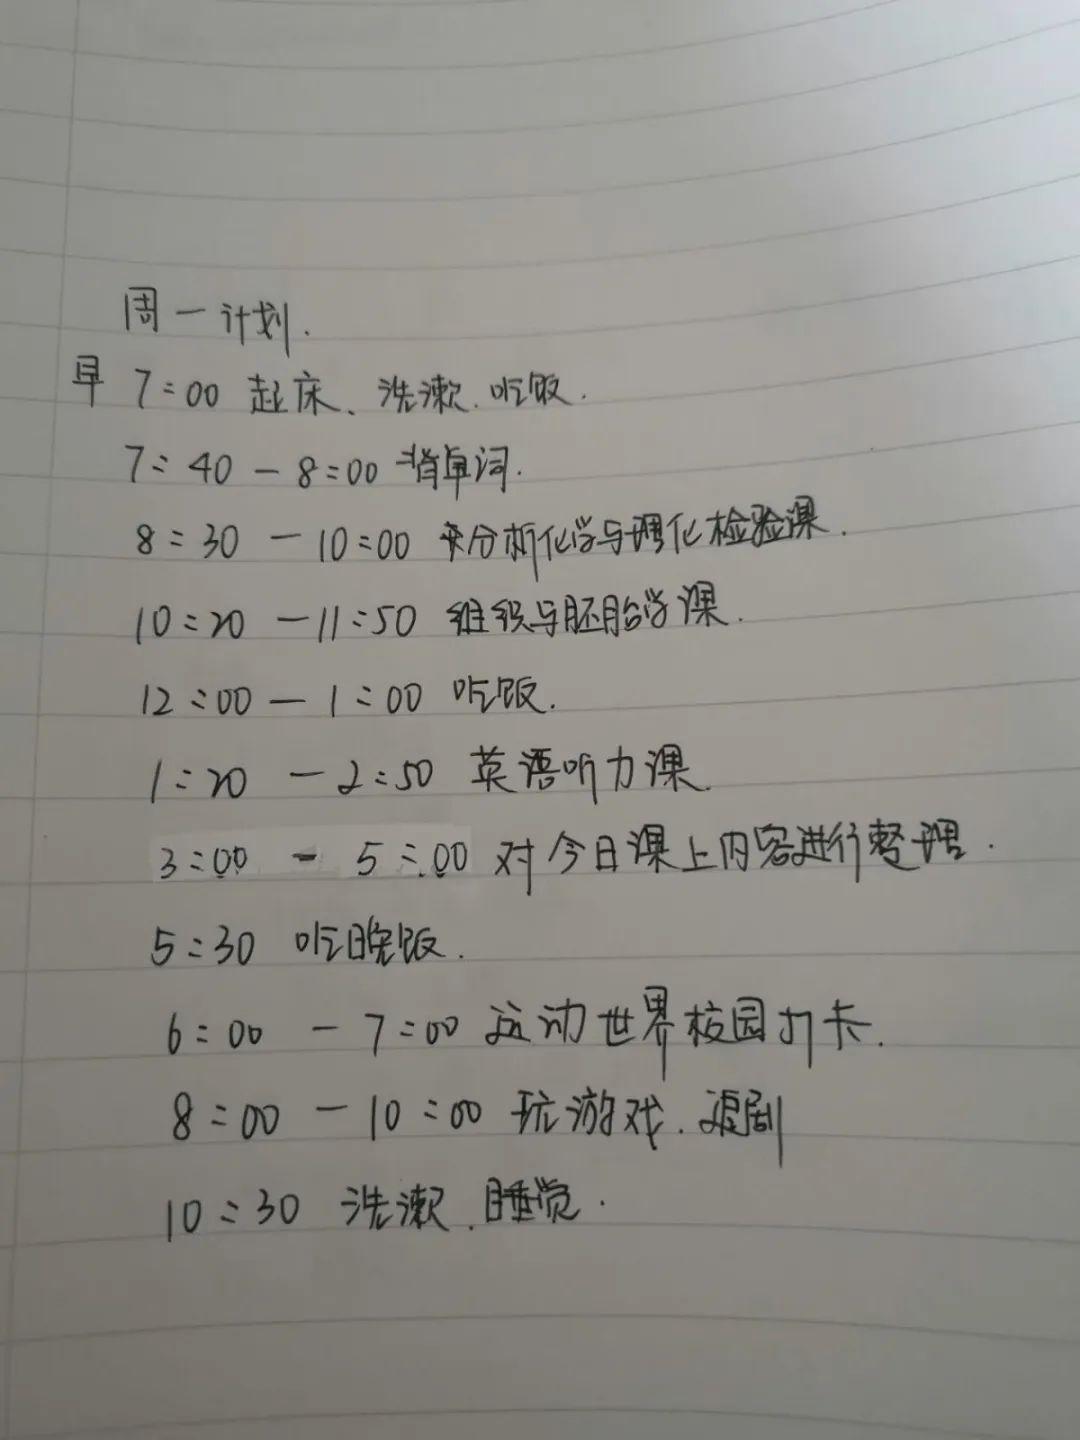 周一计划.
早 7:00 起床、洗漱、吃饭.
7:40-8:00 背单词.
8:30-10:00 分析化学与理化检验课.
10:20-11:50 组织与胚胎学课.
12:00-1:00 吃饭.
1:20-2:50 英语听力课.
3:00-5:00 对今日课上内容进行整理.
5:30 吃晚饭.
6:00-7:00 运动世界校园打卡.
8:00-10:00 玩游戏、追剧
10:30 洗漱、睡觉.